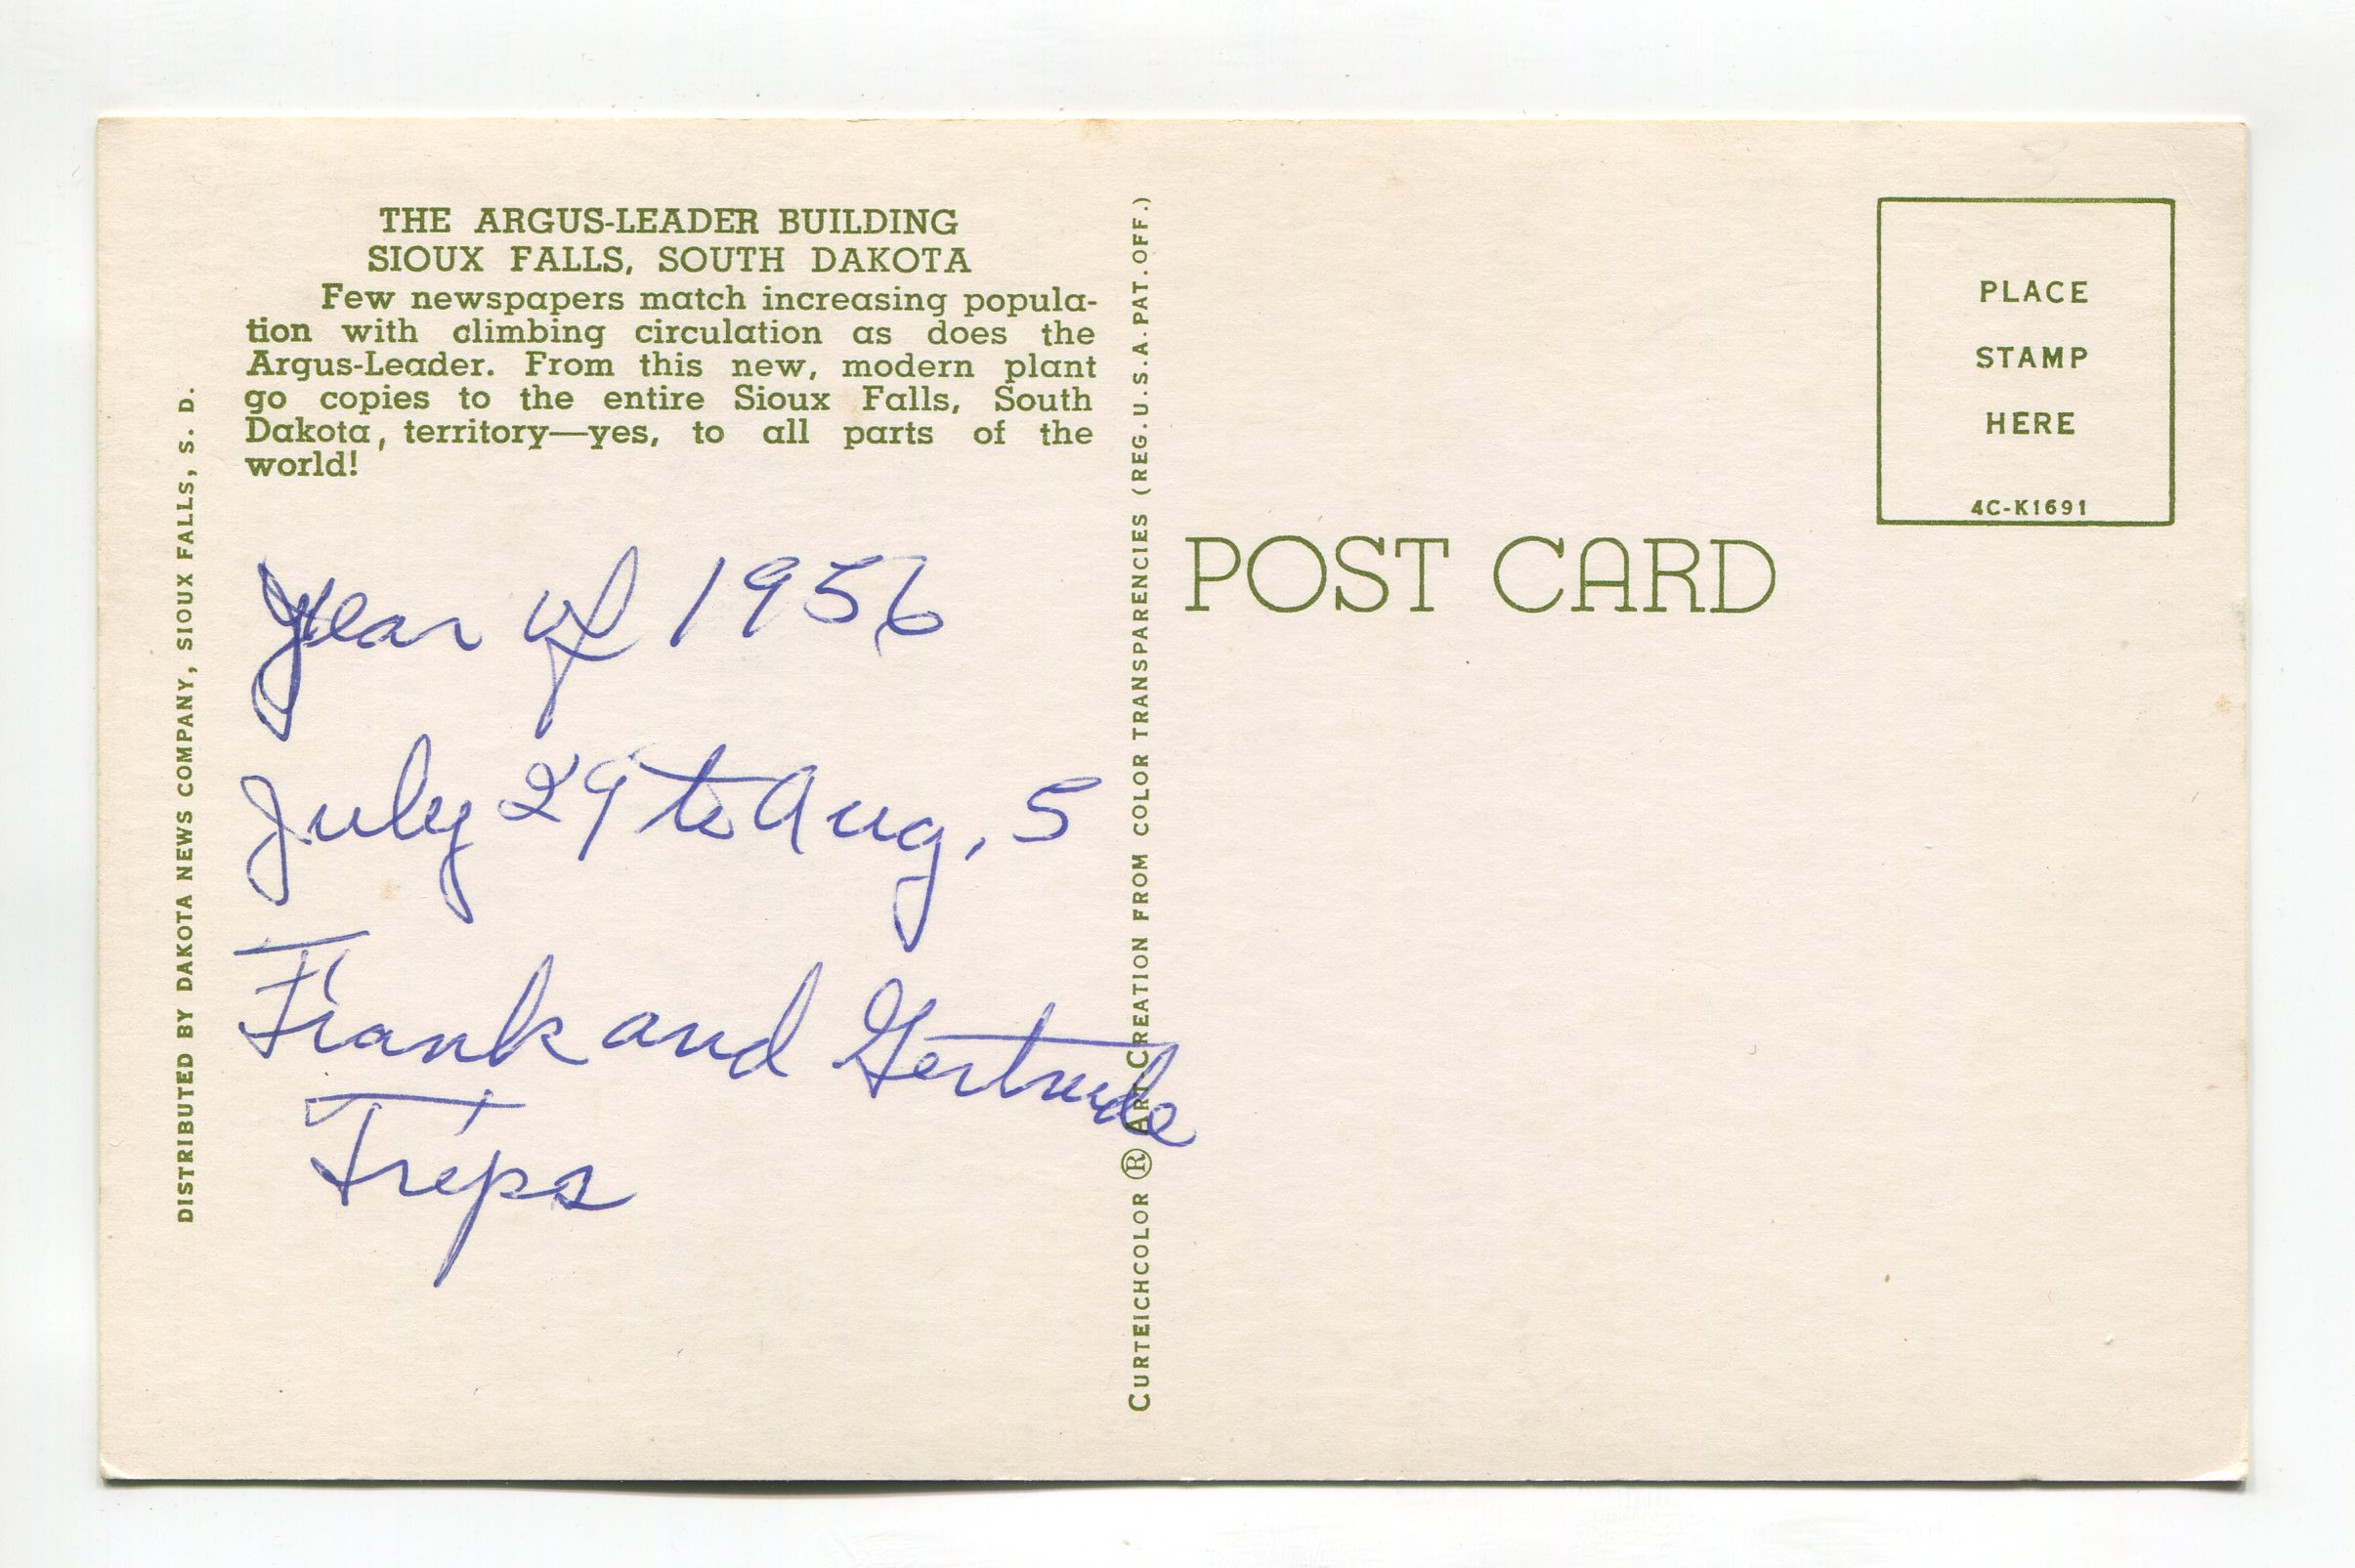 THE ARGUS-LEADER BUILDING
SIOUX FALLS, SOUTH DAKOTA
Few newspapers match increasing popula-
tion with climbing circulation as does the
Argus-Leader. From this new, modern plant
go copies to the entire Sioux Falls, South
Dakota, territory—yes, to all parts of the
world!
Year of 1956
July 29 to Aug, 5
Frank and Gertrude
Trips
DISTRIBUTED BY DAKOTA NEWS COMPANY, SIOUX FALLS, S. D.
CURTEICHCOLOR ® ART CREATION FROM COLOR TRANSPARENCIES (REG. U.S.A. PAT. OFF.)
POST CARD
PLACE
STAMP
HERE
4C-K1691